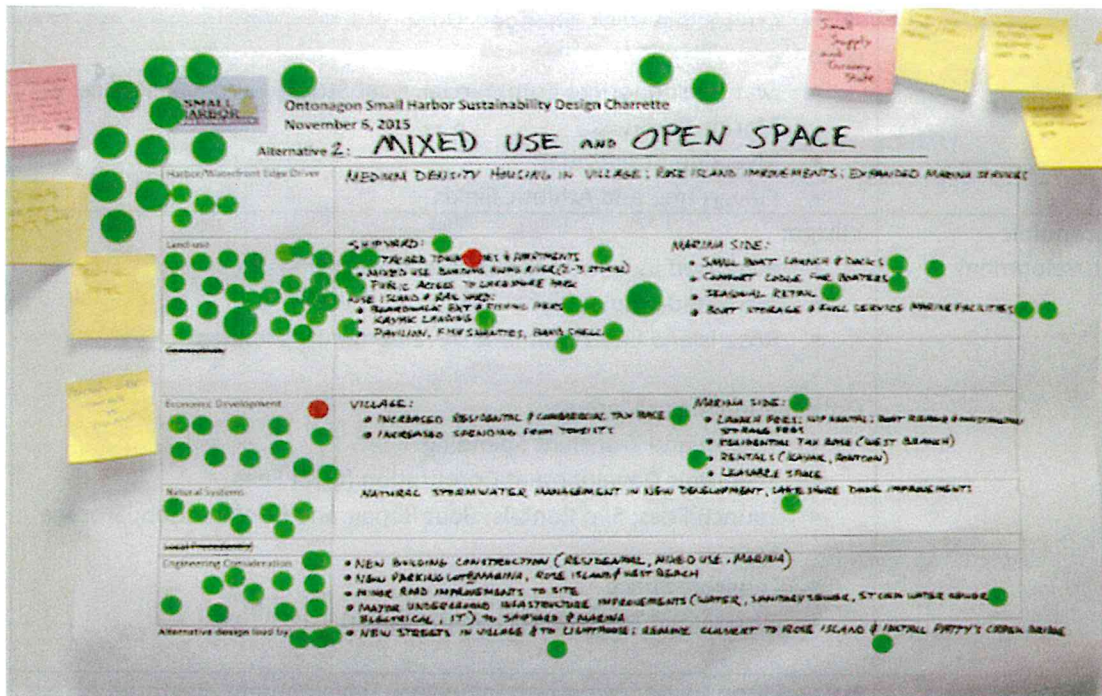 Small
Supply
and
Grocery
Store
SMALL
HARBOR
Ontonagon Small Harbor Sustainability Design Charrette
November 6, 2015
Alternative 2: MIXED USE AND OPEN SPACE
Harbor/Waterfront Edge Driver
MEDIUM DENSITY HOUSING IN VILLAGE; ROSE ISLAND IMPROVEMENTS; EXPANDED MARINA SERVICES
Land use
SHIPYARD:
& APARTMENTS
MIXED USE BUILDING ALONG RIVER (2-3 STORIES)
PUBLIC ACCESS TO LAKESHORE PARK
ROSE ISLAND & RAILYARD:
BOARDWALK EXT & FISHING PIERS
KAYAK LANDING
PAVILION, FISH SHANTIES, BAND SHELL
MARINA SIDE:
SMALL BOAT LAUNCH & DOCKS
COMFORT LODGE FOR BOATERS
SEASONAL RETAIL
BOAT STORAGE & FULL SERVICE MARINE FACILITIES
Economic Development
VILLAGE:
INCREASED RESIDENTIAL & COMMERCIAL TAX BASE
INCREASED SPENDING FROM TOURISTS
MARINA SIDE:
LAUNCH FEES; SLIP RENTAL; BOAT REPAIR &
STORAGE FEES
RESIDENTIAL TAX BASE (WEST BRANCH)
RENTALS (KAYAK, PONTOON)
LEASABLE SPACE
Natural Systems
NATURAL STORMWATER MANAGEMENT IN NEW DEVELOPMENT, LAKESHORE DUNE IMPROVEMENTS
Local Precedents
Engineering Consideration
NEW BUILDING CONSTRUCTION (RESIDENTIAL, MIXED USE, MARINA)
NEW PARKING LOT@MARINA, ROSE ISLAND & WEST BEACH
MINOR ROAD IMPROVEMENTS TO SITE
MAYOR UNDERGROUND INFASTRUCTURE IMPROVEMENTS (WATER, SANITARY SEWER, STORM WATER SEWER
ELECTRICAL, IT) TO SHIPYARD & MARINA
Alternative design lead by
NEW STREETS IN VILLAGE & TO LIGHTHOUSE; REMOVE CULVERT TO ROSE ISLAND & INSTALL PATTY'S CREEK BRIDGE